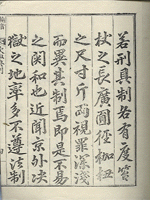 若刑具制若有度等
杖之長廣圓徑枷杻
之尺寸斤兩視罪深淺
而異其制焉即是不易
之関和也近聞京外决
獄之地率多不遵法制